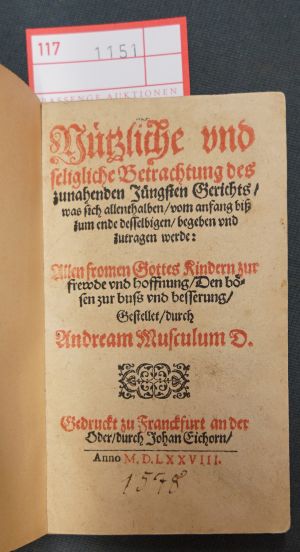 117
1151
BASSENGE AUKTIONEN
Nützliche vnd
seligliche Betrachtung des
zunahenden Jüngsten Gerichts/
was sich allenthalben/vom anfang biß
zum ende desselbigen/begeben vnd
zutragen werde:
Allen fromen Gottes Kindern zur
frewde vnd hoffnung/Den bö-
sen zur buß vnd besserung/
Gestellet/durch
Andream Musculum D.
Gedruckt zu Franckfurt an der
Oder/durch Johan Eichorn/
Anno M.D.LXXVIII.
1578